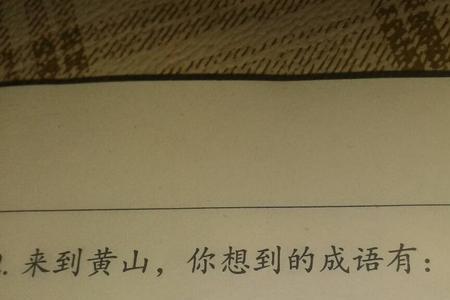 . 来到黄山，你想到的成语有：